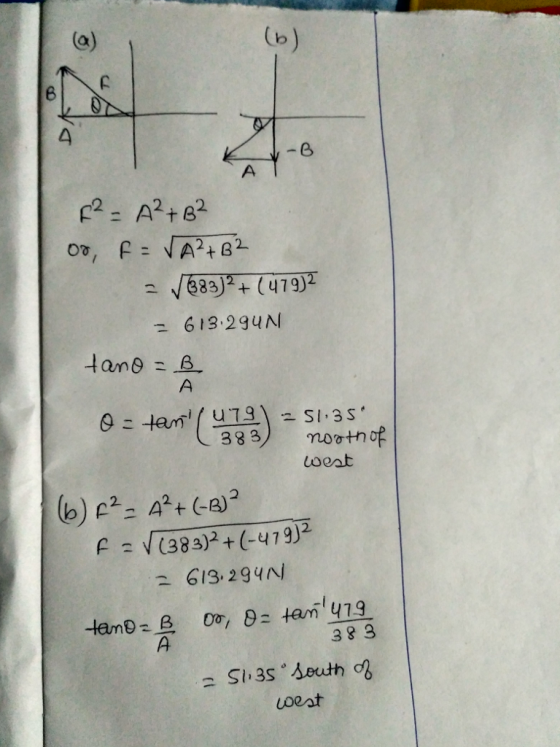 (a) (b)
B F θ A
θ -B A
F² = A² + B²
or, F = √A² + B²
= √(383)² + (479)²
= 613.294N
tanθ = B/A
θ = tan⁻¹(479/383) = 51.35°
north of
west
(b) F² = A² + (-B)²
F = √(383)² + (-479)²
= 613.294N
tanθ = B/A or, θ = tan⁻¹ 479/383
= 51.35° south of
west